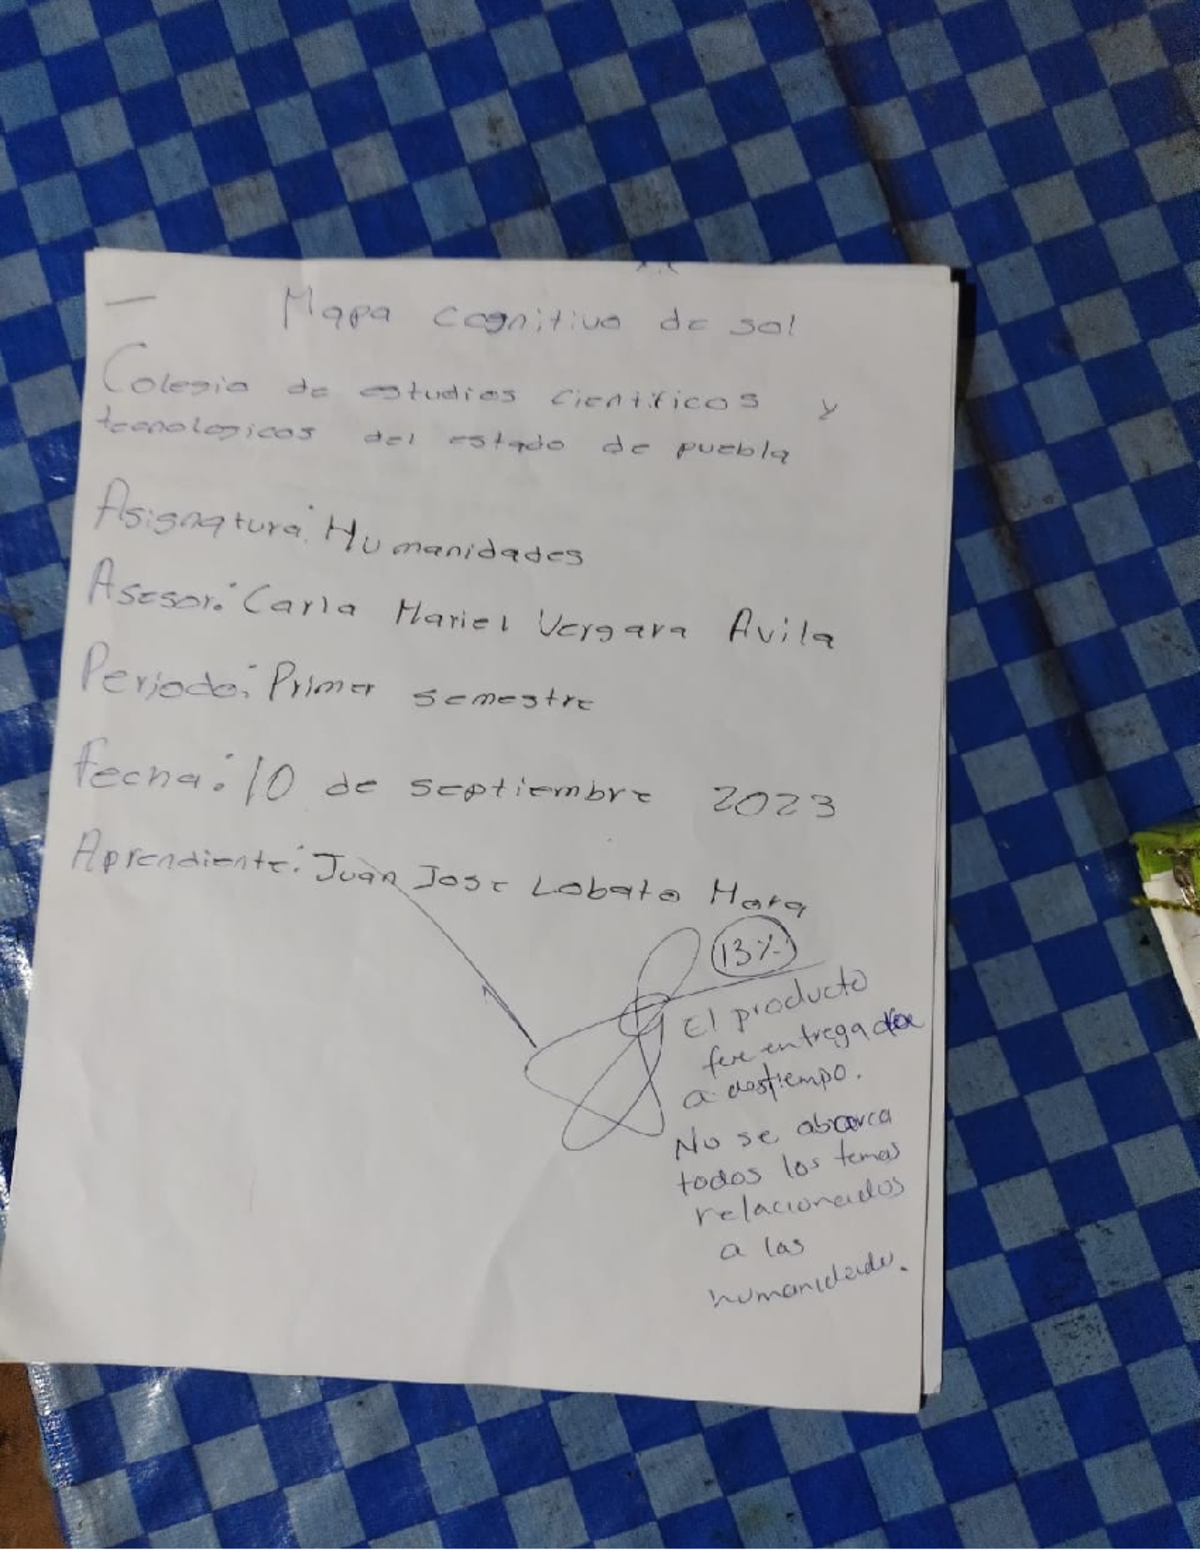 Mapa cognitivo de sol
Colegio de estudios cientificos y
tecnologicos del estado de puebla
Asignatura: Humanidades
Asesor: Carla Mariel Vergara Avila
Periodo: Primer semestre
Fecha: 10 de septiembre 2023
Aprendiente: Juan Jose Lobato Mora
13%
El producto
fue entregado
a destiempo.
No se abarca
todos los temas
relacionados
a las
humanidades.